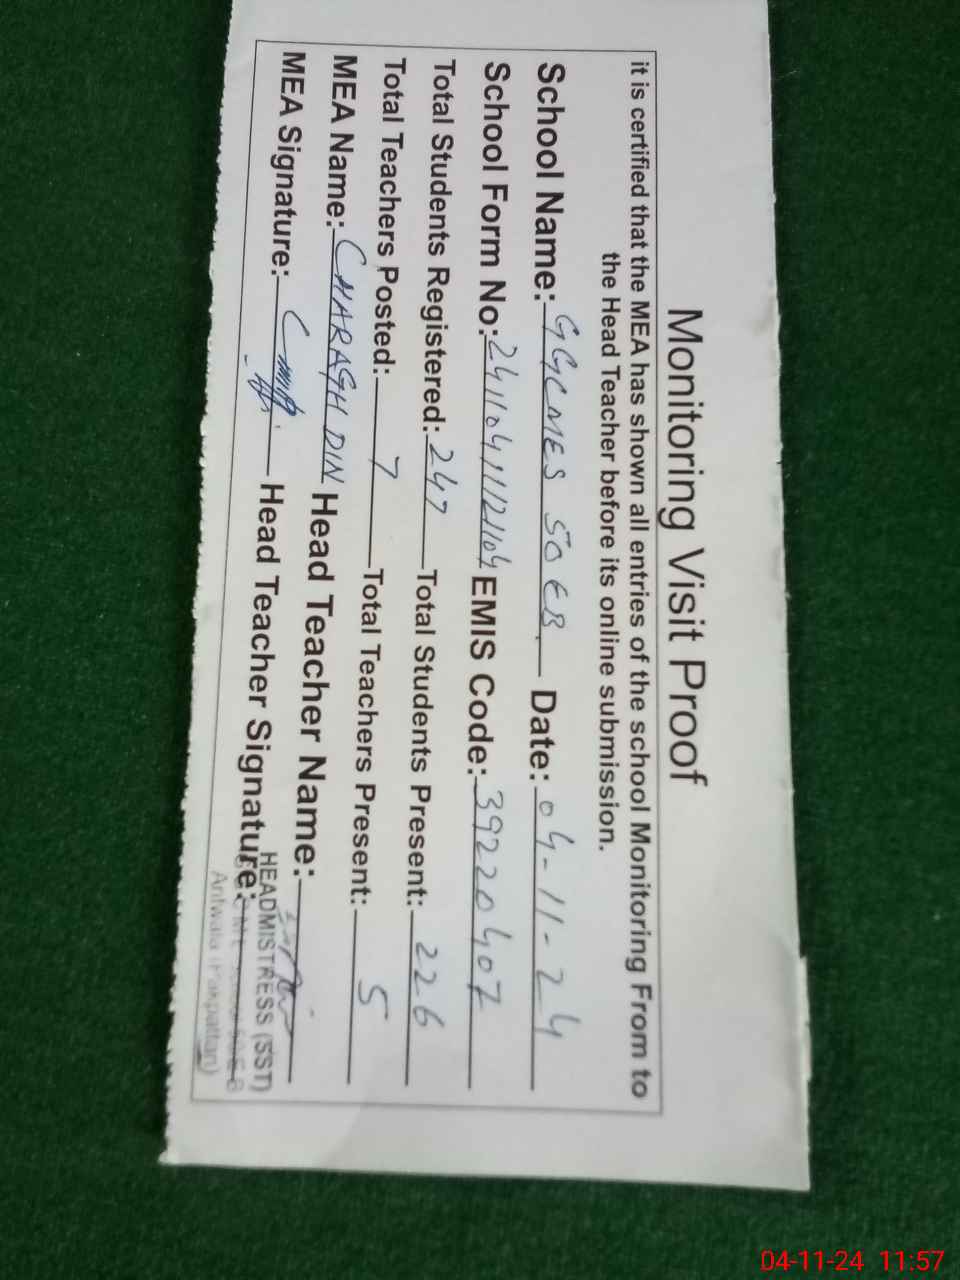 Monitoring Visit Proof
it is certified that the MEA has shown all entries of the school Monitoring From to
the Head Teacher before its online submission.
School Name: GGCMES 50 EB Date: 04-11-24
School Form No: EMIS Code: 39220407
Total Students Registered: 247 Total Students Present: 226
Total Teachers Posted: 7 Total Teachers Present: 5
MEA Name: CHARAGH DIN Head Teacher Name:
MEA Signature: Head Teacher Signature:
HEADMISTRESS (SST)
(Pakpattan)
04-11-24 11:57